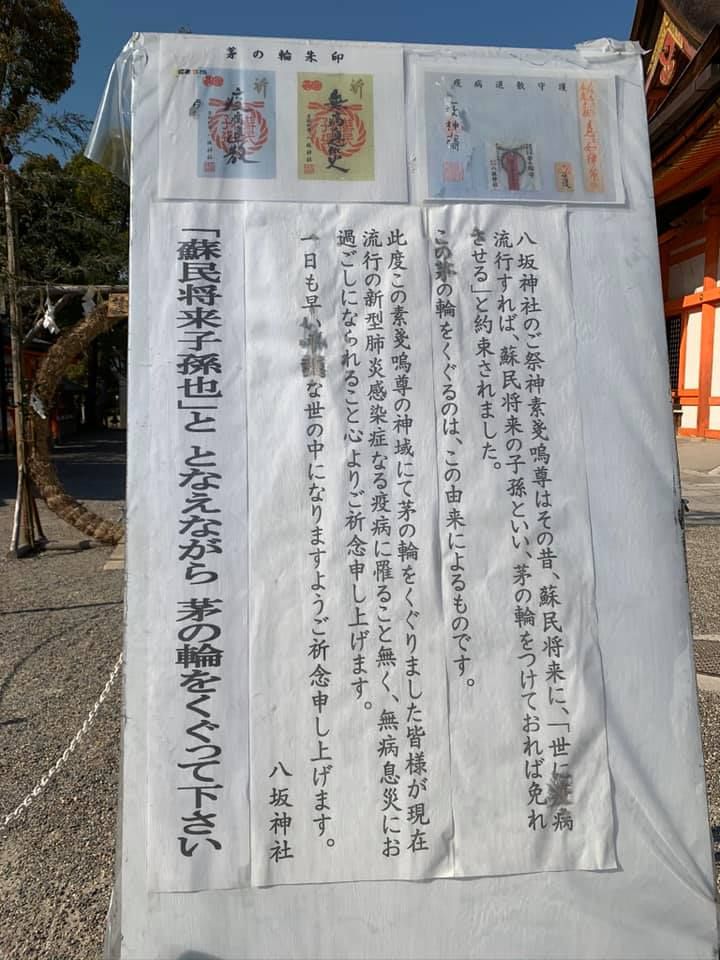 茅の輪朱印
祈
疫病退散
八坂神社
祈
無病息災
八坂神社
疫病退散守護
八坂神社のご祭神素戔嗚尊はその昔、蘇民将来に、「世に疫病
流行すれば、蘇民将来の子孫といい、茅の輪をつけておれば免れ
させる」と約束されました。
この茅の輪をくぐるのは、この由来によるものです。
此度この素戔嗚尊の神域にて茅の輪をくぐりました皆様が現在
流行の新型肺炎感染症なる疫病に罹ること無く、無病息災にお
過ごしになられること心よりご祈念申し上げます。
一日も早いな世の中になりますようご祈念申し上げます。
八坂神社
「蘇民将来子孫也」と となえながら 茅の輪をくぐって下さい